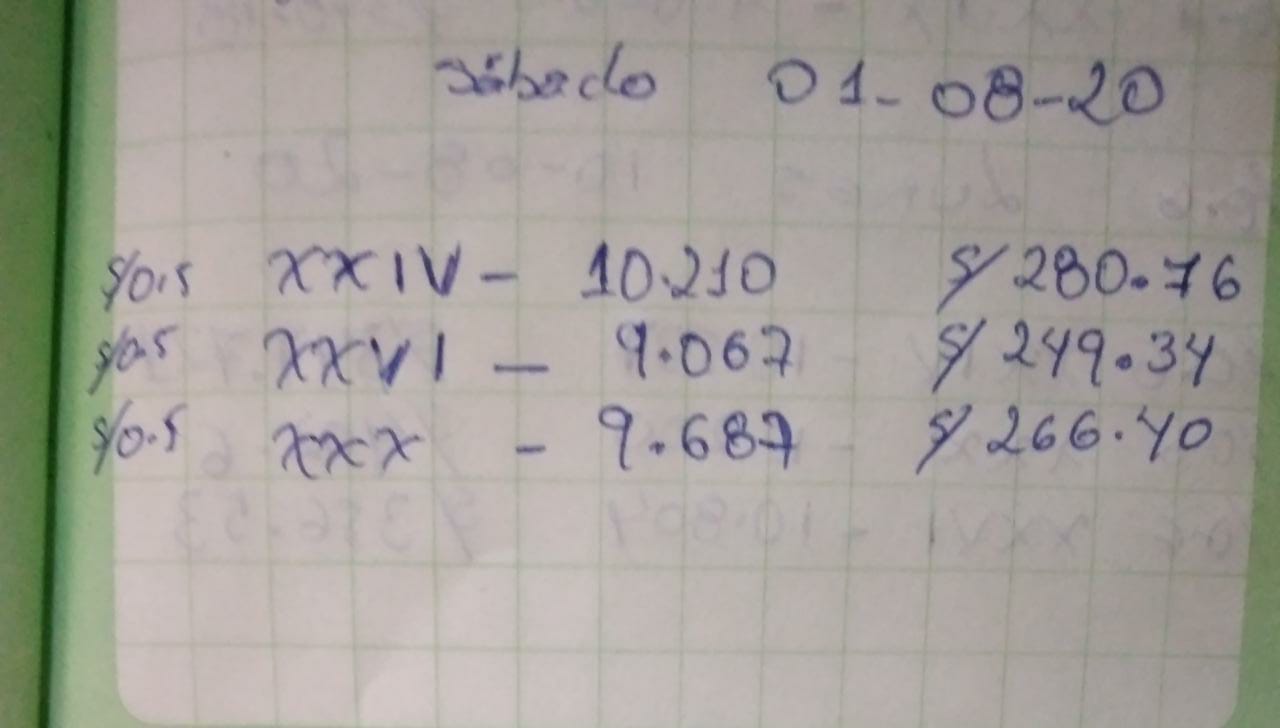 Sábado 01-08-20
S/0.5 XXIV - 10.210 S/ 280.76
S/0.5 XXVI - 9.067 S/ 249.34
S/0.5 XXX - 9.687 S/ 266.40